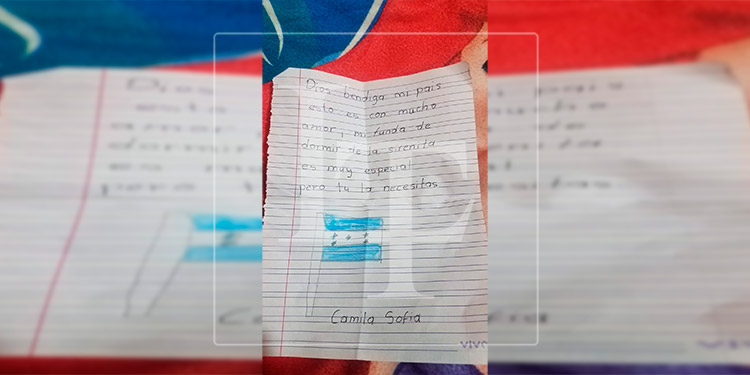 Dios bendiga mi pais
esto es con mucho
amor, mi funda de
dormir de la sirenita
es muy especial
pero tu la necesitas
Camila Sofia
VIVO